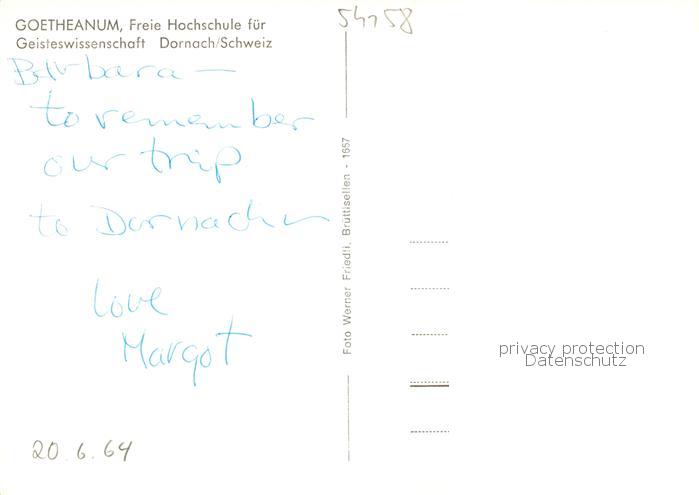 GOETHEANUM, Freie Hochschule für
Geisteswissenschaft Dornach/Schweiz
Barbara —
to remember
our trip
to Dornach
love
Margot
20.6.64
54158
Foto Werner Friedli, Brüttisellen - 1657
privacy protection
Datenschutz